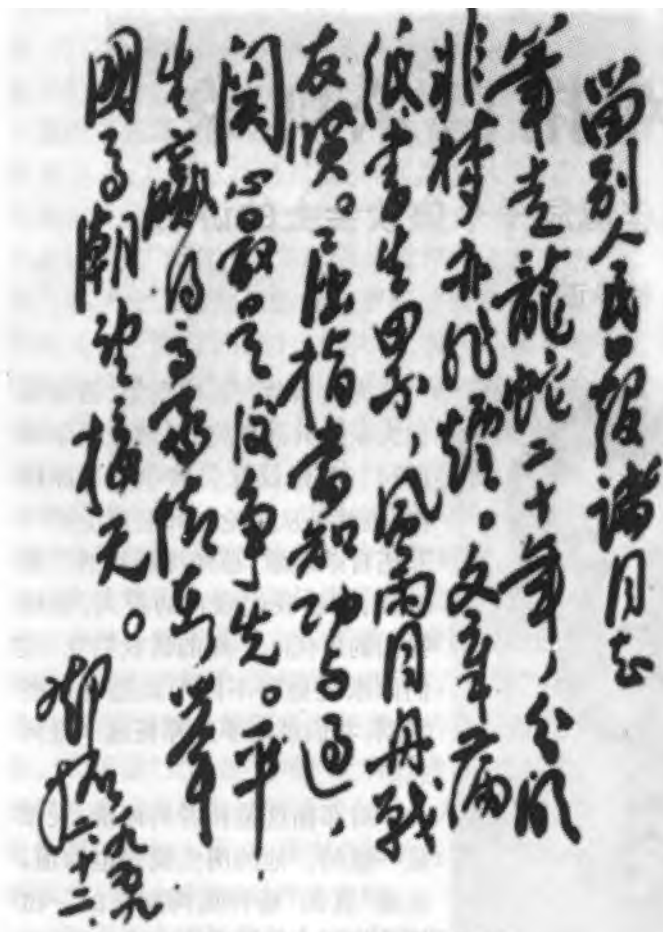 留别人民日报诸同志
筆走龍蛇二十年，分明
非梦亦非烟。文章满
纸書生累，风雨同舟战
友贤。屈指当知功与过，
関心最是後争先。平
生赢得豪情在，举
國高潮望接天。
邓拓
一九五九
二、十二.